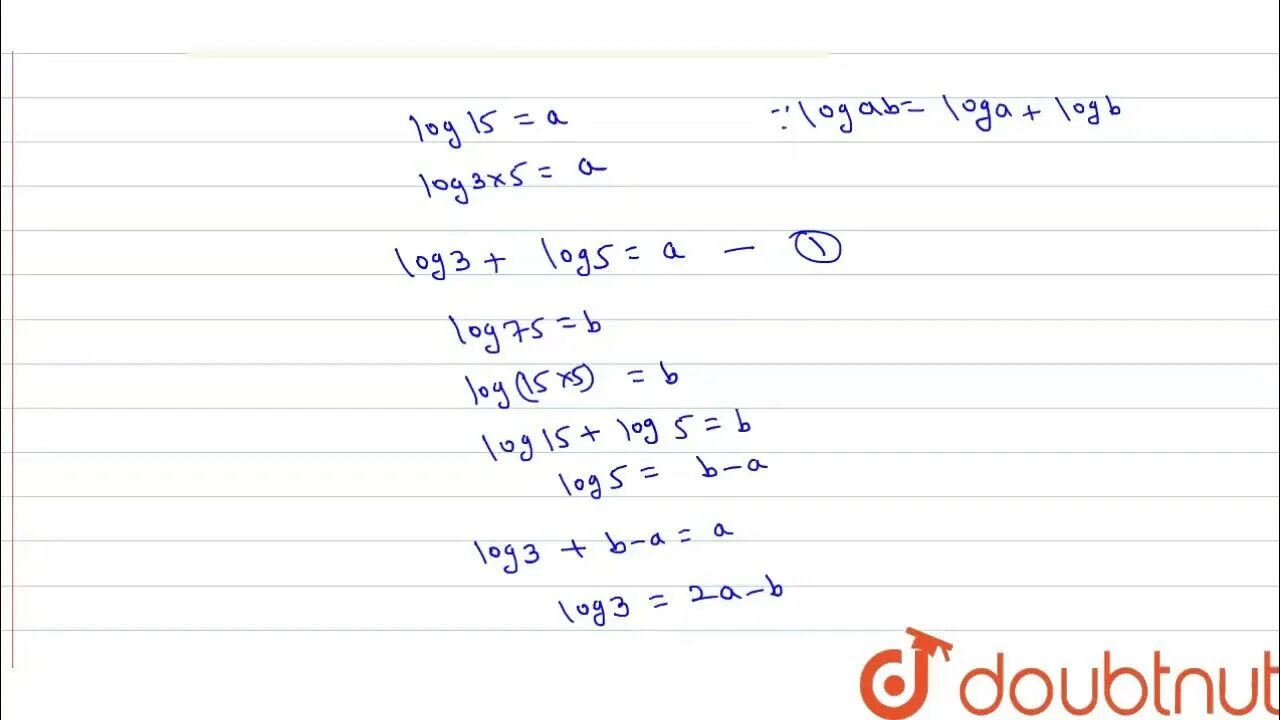 log 15 = a ∵ log ab = log a + log b
log 3×5 = a
log 3 + log 5 = a — ①
log 75 = b
log (15 ×5) = b
log 15 + log 5 = b
log 5 = b-a
log 3 + b-a = a
log 3 = 2a-b
doubtnut